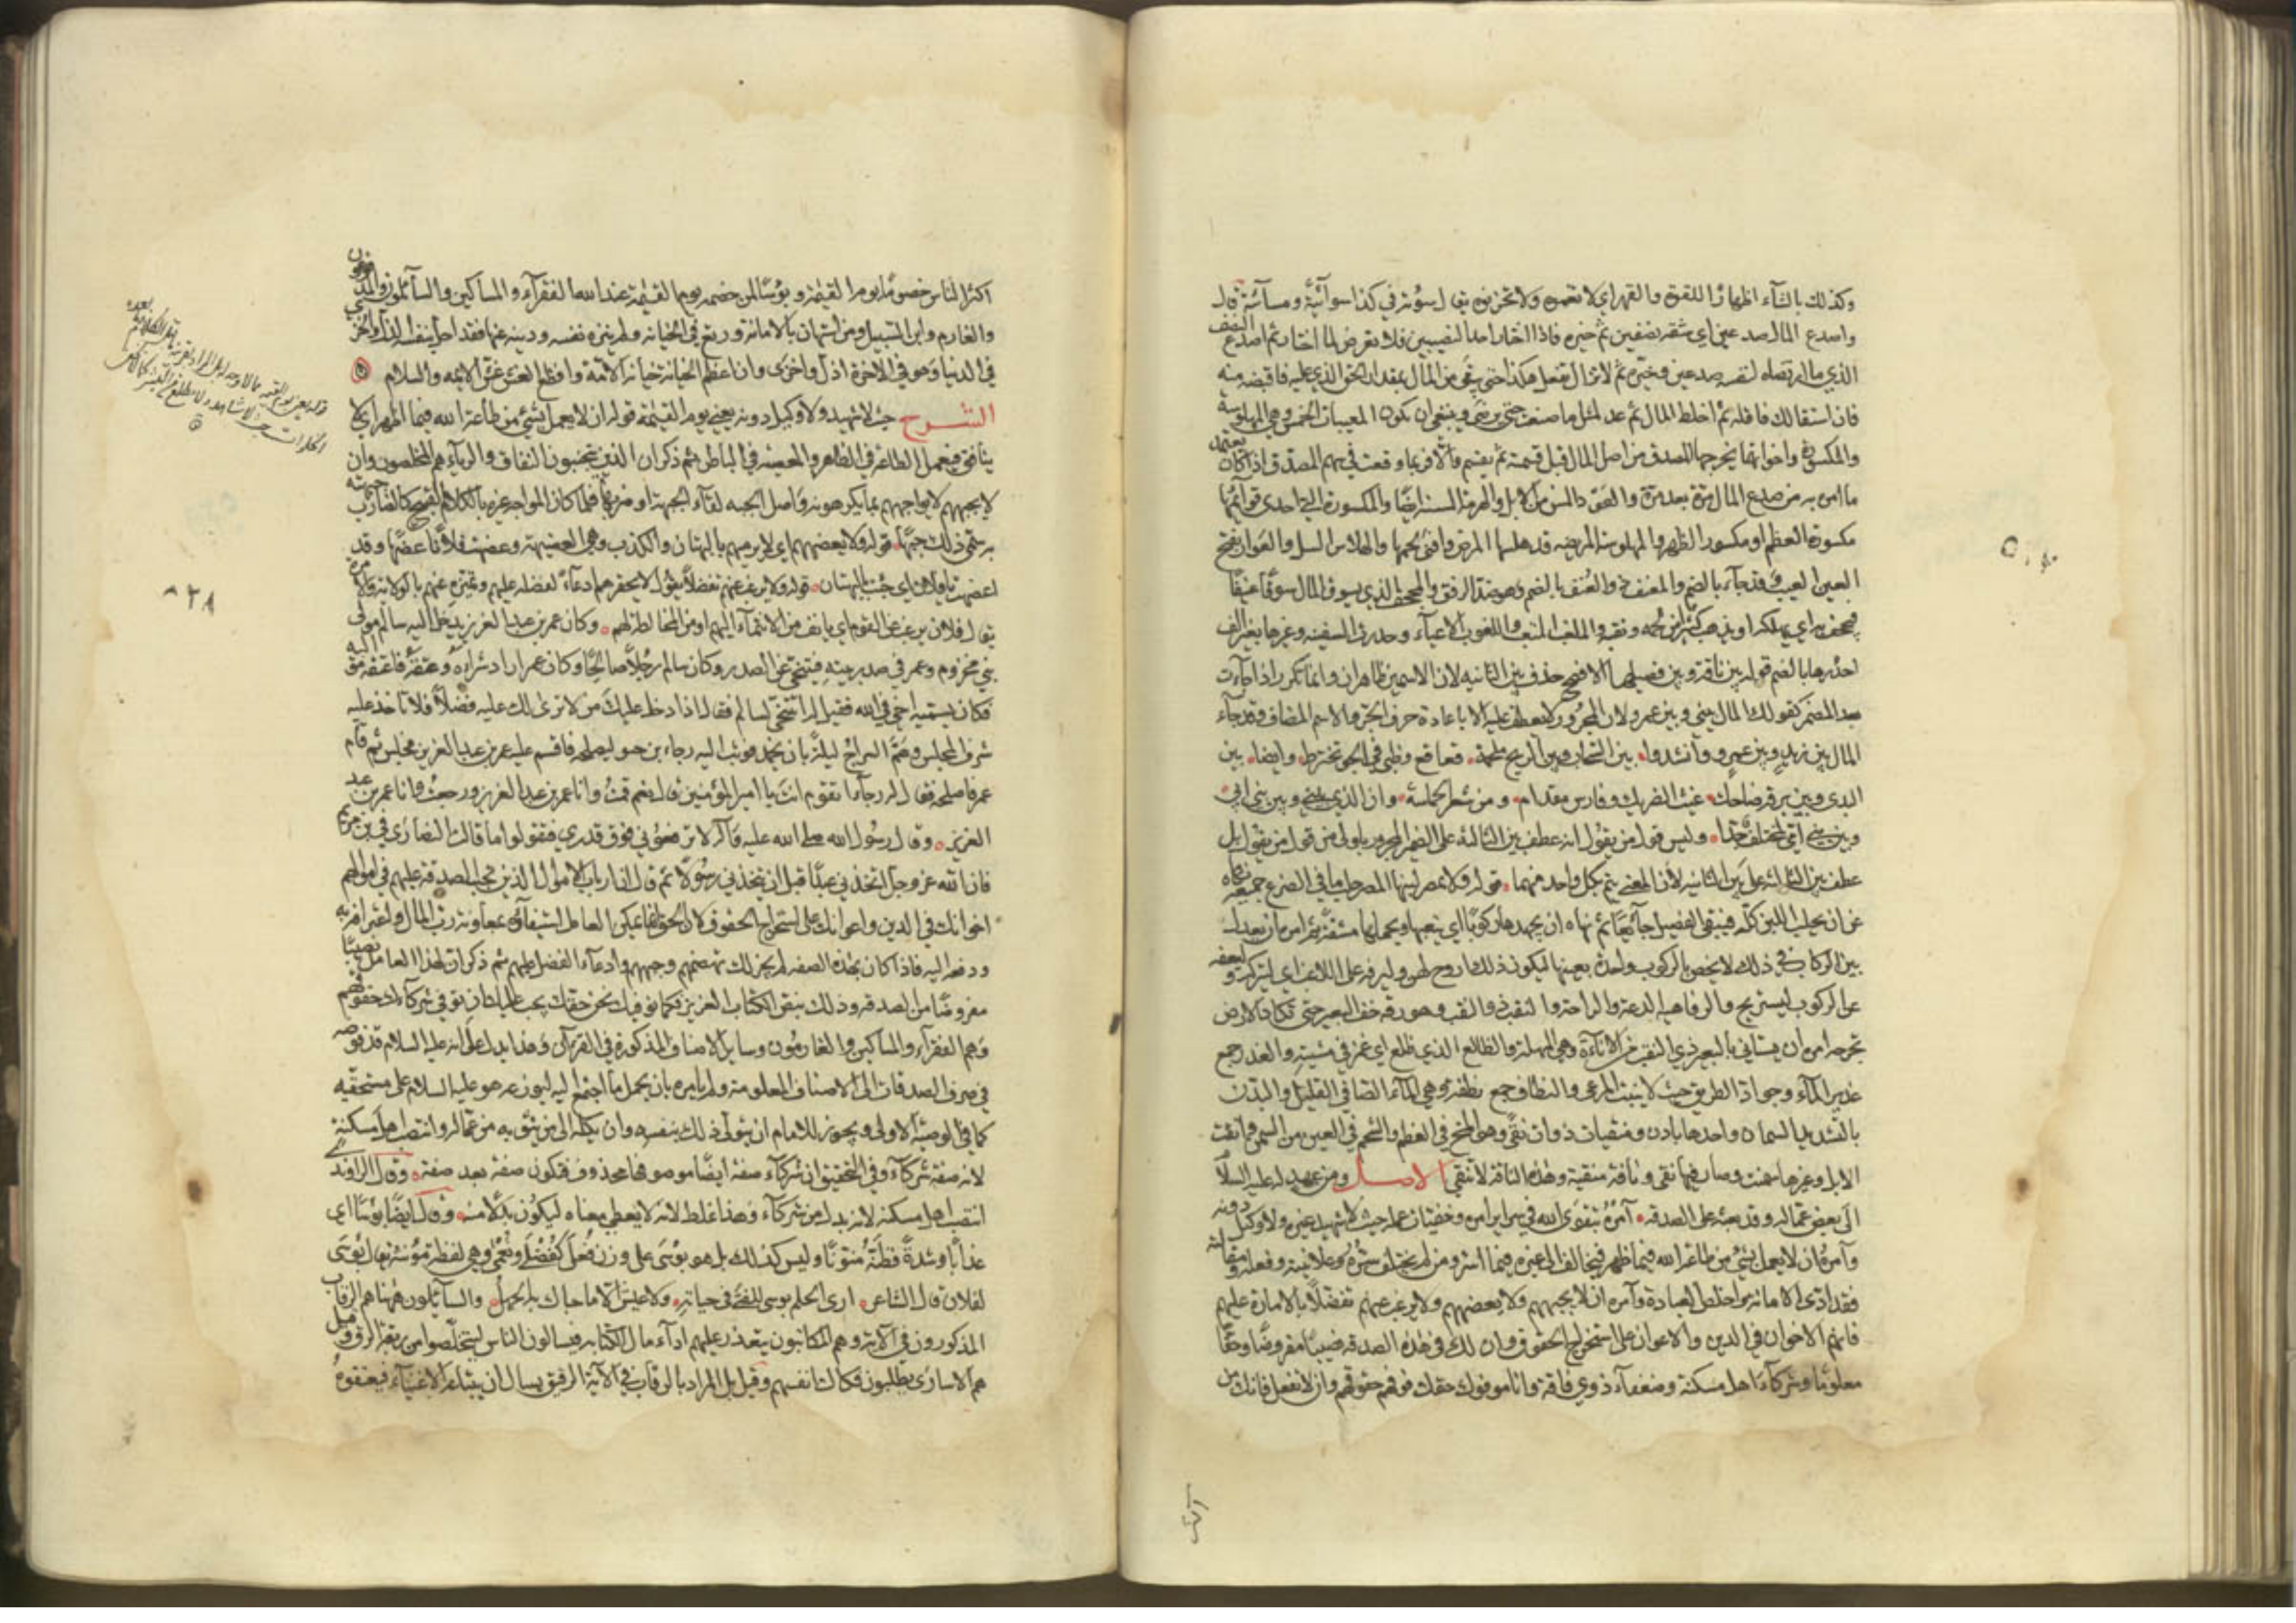 وكذلك بالتآء اظهارًا للقوة والقهر اي لا تغمه ولا تحزنه يقال سؤته في كذا سوآئية ومسآئية قال
واصدع المال صدعين اي شقه نصفين ثم خيره فاذا اختار احد النصيبين فلا تعرض لما اختار ثم اصدع النصف
الذي ما ارتضاه لنفسه صدعين وخيره ثم لا تزال تفعل هكذا حتى يبقى من المال بمقدار الحق الذي عليه فاقبضه منه
فان استقالك فاقله ثم اخلط المال ثم عد لمثل ما صنعت حتى يرضى وينبغي ان يكون المعيبات الخمس وهي المهلوسة
والمكسورة واخواتهما يخرجها المصدق من اصل المال قبل قسمته ثم يقسم والا فربما وقعت في سهم المصدق اذا كان يعتمد
ما امره به من صدع المال مرة بعد مرة والعود المسن من الابل والهرمة المسنة ايضًا والمكسورة التي احدى قوائمها
مكسورة العظم او مكسورة الظهر والمهلوسة المريضة قد هلسها المرض وافنى لحمها والهلاس السل والعوار بفتح
العين العيب وقد جاء بالضم والمعنف ذو العنف بالضم وهو ضد الرفق والمجحف الذي يسوق المال سوقًا عنيفًا
فيجحف به اي يهلكه او يذهب كثيرًا من لحمه ونقيه والملغب المتعب واللغوب الاعياء وحدرت السفينة وغيرها بغير الف
احدرها بالضم قوله بين ناقة وبين فصيلها الافصح حذف بين الثانية لان الاسمين ظاهران وانما تكرر اذا جاءت
بعد المضمر كقولك المال بيني وبين عمرو لان المجرور لا يعطف عليه الا باعادة حرف الجر والاسم المضاف وقد جاء
المال بين زيد وبين عمرو وانشدوا بين السحاب وبين الريح ملحمة قعاقع وظبى في الجو تخترط وايضا بين
الندى وبين برقة ضاحك غيث الضريك وفارس مقدام ومن شعر الحماسة وان الذي بيني وبين بني ابي
وبين بني امي لمختلف جدا وليس قول من يقول انه عطف بين الثالثة على الضمير المجرور باولى من قول من يقول بل
عطف بين الثالثة على بين الثانية لان المعنى يتم بكل واحد منهما قوله ولا تمصر لبنها المصر حلب ما في الضرع جميعه نهاه
عن ان يحلب اللبن كله فيبقى الفصيل جائعًا ثم نهاه ان يجهدها ركوبًا اي يتعبها ويحملها مشقة ثم امره ان يعدل
بين الركاب في ذلك لا يخص بالركوب واحدة بعينها ليكون ذلك اروح لهن وليرفه على اللاغب اي ليتركه وليعفه
عن الركوب ليستريح والرفاهية الدعة والراحة والنقب ذو النقب وهو رقة خف البعير حتى تكاد الارض
تجرحه امره ان يستاني بالبعير ذي النقب من الاناءة وهي المهلة والظالع الذي ظلع اي غمز في مشيته والغدر جمع
غدير الماء وجواد الطريق حيث لا ينبت المرعى والنطاف جمع نطفة وهي الماء الصافي القليل والبدن
بالتشديد السمان واحدها بادن ومنقيات ذوات نقي وهو المخ في العظم والشحم في العين من السمن وانقت
الابل وغيرها سمنت وصار فيها نقي وناقة منقية وهذه الناقة لا تنقي الاصل ومن عهد له عليه السلام
الى بعض عماله وقد بعثه على الصدقة آمره بتقوى الله في سراير امره وخفيات عمله حيث لا شهيد غيره ولا وكيل دونه
وآمره ان لا يعمل بشيء من طاعة الله فيما ظهر فيخالف الى غيره فيما اسر ومن لم يختلف سره وعلانيته وفعله ومقالته
فقد ادى الامانة واخلص العبادة وآمره ان لا يجبههم ولا يعضههم ولا يرغب عنهم تفضلاً بالامارة عليهم
فانهم الاخوان في الدين والاعوان على استخراج الحقوق وان لك في هذه الصدقة نصيبًا مفروضًا وحقًا
معلومًا وشركاءَ اهل مسكنة وضعفاء ذوي فاقة وانا موفوك حقك فوفهم حقوقهم وان لا تفعل فانك من
اكثر الناس خصومًا يوم القيمة وبؤسًا لمن خصمه يوم القيمة عند الله الفقراء والمساكين والسائلون والمدفوعون
والغارم وابن السبيل ومن استهان بالامانة ورتع في الخيانة ولم ينزه نفسه ودينه عنها فقد احل بنفسه الذل والخزي
في الدنيا وهو في الاخرة اذل واخزى وان اعظم الخيانة خيانة الامة وافظع الغش غش الائمة والسلام
الشرح حيث لا شهيد ولا وكيل دونه يعني يوم القيمة قوله ان لا يعمل بشيء من طاعة الله فيما ظهر اي لا
ينافق فيعمل الطاعة في الظاهر والمعصية في الباطن ثم ذكر ان الذين يتجنبون النفاق والرياء هم المخلصون وان
لا يجبههم لا يواجههم بما يكرهونه واصل الجبه لقاء الجبهة او ضربها فلما كان المواجه غيره بالكلام القبيح كالضارب جبهته
به سمى ذلك جبهًا قوله ولا يعضههم اي لا يرميهم بالبهتان والكذب وهي العضيهة وعضهت فلانًا عضهًا وقد
اعضهت يا فلان اي جئت بالبهتان قوله ولا يرغب عنهم تفضلاً يقول لا يحقرهم ادعاءً لفضله عليهم وتميزه عنهم بالولاية والامرة
يقال فلان يرغب عن القوم اي يانف من الانتماء اليهم او من المخالطة لهم وكان عمر بن عبد العزيز يدخل اليه سالم مولى
بني مخزوم وعمر في صدر بيته فيتنحى عن الصدر وكان سالم رجلاً صالحًا وكان عمر اراد شراءه وعتقه فاعتقه مواليه
فكان يسميه اخي في الله فقيل له اتتنحى لسالم فقال اذا دخل عليك من لا ترى لك عليه فضلاً فلا تاخذ عليه
شرف المجلس وهمّ السراج ليلة بان يخمد فوثب اليه رجاء بن حيوة ليصلحه فاقسم عليه عمر بن عبد العزيز فجلس ثم قام
عمر فاصلحه فقال له رجاء اتقوم انت يا امير المؤمنين قال نعم قمت وانا عمر بن عبد العزيز ورجعت وانا عمر بن عبد
العزيز وقال رسول الله صلى الله عليه وآله لا ترفعوني فوق قدري فتقولوا ما قالت النصارى في ابن مريم
فان الله عز وجل اتخذني عبدًا قبل ان يتخذني رسولاً ثم قال ان ارباب الاموال الذين تجب الصدقة عليهم في اموالهم
اخوانك في الدين واعوانك على استخراج الحقوق لان الحق انما يمكن العامل استيفاؤه بمعاونة رب المال واعترافه به
ودفعه اليه فاذا كان بهذه الصفة لم يجز لك عضههم وجبههم وادعاء الفضل عليهم ثم ذكر ان لهذا العامل نصيبًا
مفروضًا من الصدقة وذلك بنص الكتاب العزيز فكما نوفيك نحن حقك يجب عليك ان توفي شركاءك حقوقهم
وهم الفقراء والمساكين والغارمون وساير الاصناف المذكورة في القرآن وهذا يدل على انه عليه السلام قد فوضه
في صرف الصدقات الى الاصناف المعلومة ولم يامره بان يحمل ما اجتمع اليه ليوزعه هو عليه السلام على مستحقيه
كما في الوصية الاولى ويجوز للامام ان يتولى ذلك بنفسه وان يكله الى من يثق به من عماله وانتصب اهل مسكنة
لانه صفة شركاء وفي التحقيق ان شركاء صفة ايضًا موصوفها محذوف فتكون صفة بعد صفة وقال الراوندي
انتصب اهل مسكنة لانه بدل من شركاء وهذا غلط لانه لا يعطي معناه ليكون بدلاً منه وقال ايضًا بؤسًا اي
عذابًا وشدة فظنه منونًا وليس كذلك بل هو بؤسى على وزن فعلى كفضلى ونعمى وهي لفظة مؤنثة يقال بؤسى
لفلان قال الشاعر ارى الحلم بؤسى للفتى في حياته ولا عيش الا ما حباك به الجهل والسائلون ههنا هم الرقاب
المذكورون في الآية وهم المكاتبون يتعذر عليهم اداء مال الكتابة فيسالون الناس ليتخلصوا من ربقة الرق وقيل
هم الاسارى يطلبون فكاك انفسهم وقيل بل المراد بالرقاب في الآية الرقيق يسال ان يبتاعه الاغنياء فيعتقوه